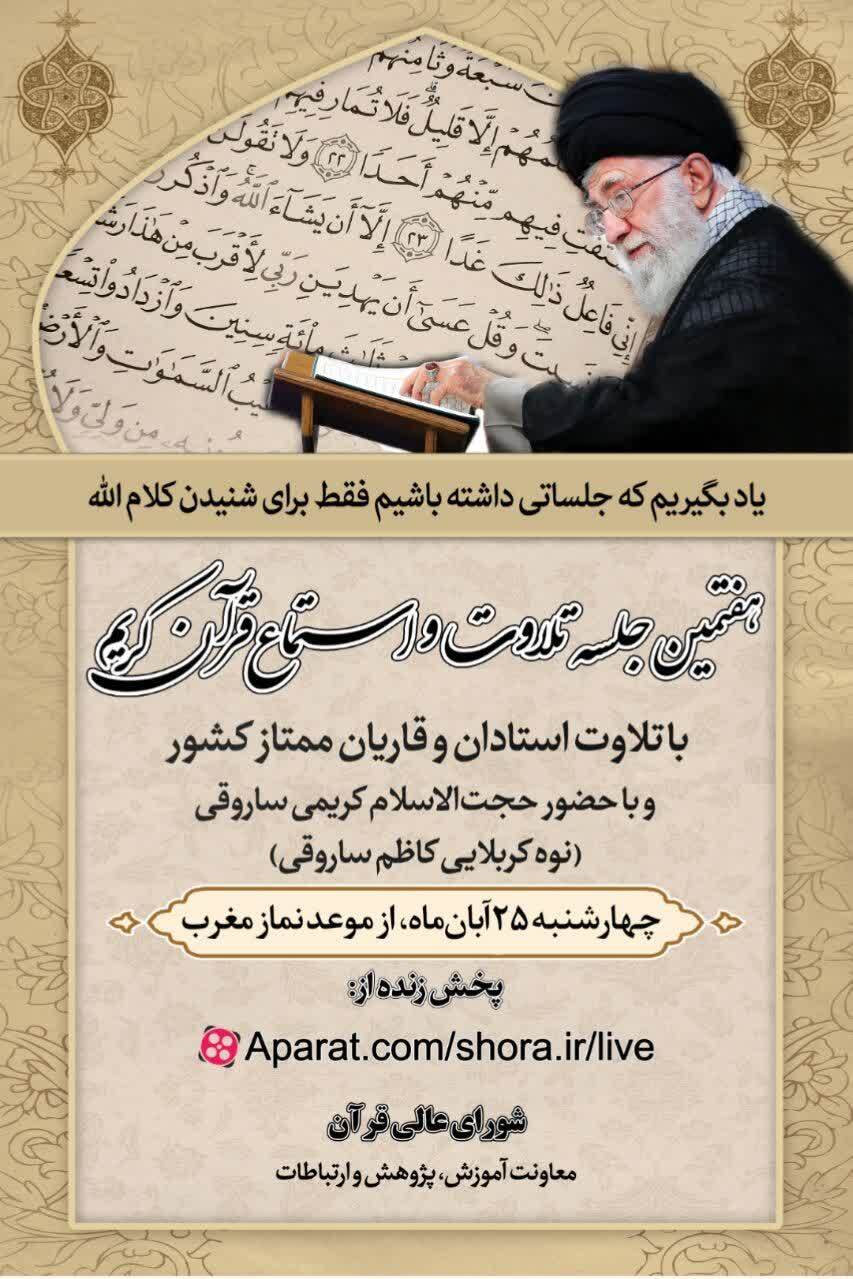 سَبْعَةٌ وَثَامِنُهُمْ
إِلَّا قَلِيلٌ فَلَا تُمَارِ فِيهِمْ
فِيهِم مِّنْهُمْ أَحَدًا ٢٢ وَلَا تَقُولَنَّ
إِنِّي فَاعِلٌ ذَٰلِكَ غَدًا ٢٣ إِلَّا أَن يَشَاءَ اللَّهُ وَاذْكُر
وَقُلْ عَسَىٰ أَن يَهْدِيَنِ رَبِّي لِأَقْرَبَ مِنْ هَٰذَا
مِائَةٍ سِنِينَ وَازْدَادُوا تِسْعًا
السَّمَاوَاتِ وَالْأَرْضِ
مِن وَلِيٍّ وَلَا
یاد بگیریم که جلساتی داشته باشیم فقط برای شنیدن کلام الله
هفتمین جلسه تلاوت و استماع قرآن کریم
با تلاوت استادان و قاریان ممتاز کشور
و با حضور حجت‌الاسلام کریمی ساروقی
(نوه کربلایی کاظم ساروقی)
چهارشنبه ۲۵ آبان‌ماه، از موعد نماز مغرب
پخش زنده از:
Aparat.com/shora.ir/live
شورای عالی قرآن
معاونت آموزش، پژوهش و ارتباطات